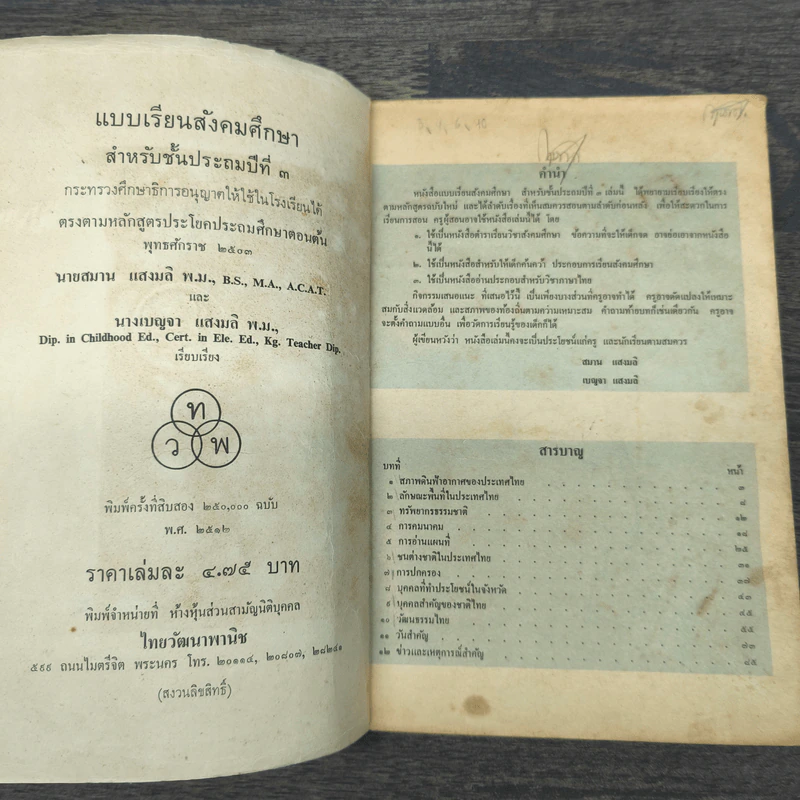 แบบเรียนสังคมศึกษา
สำหรับชั้นประถมปีที่ ๓
กระทรวงศึกษาธิการอนุญาตให้ใช้ในโรงเรียนได้
ตรงตามหลักสูตรประโยคประถมศึกษาตอนต้น
พุทธศักราช ๒๕๐๓
นายสมาน แสงมลิ พ.ม., B.S., M.A., A.C.A.T.
และ
นางเบญจา แสงมลิ พ.ม.,
Dip. in Childhood Ed., Cert. in Ele. Ed., Kg. Teacher Dip.
เรียบเรียง
ท
ว พ
พิมพ์ครั้งที่สิบสอง ๒๕๐,๐๐๐ ฉบับ
พ.ศ. ๒๕๑๒
ราคาเล่มละ ๔.๗๕ บาท
พิมพ์จำหน่ายที่ ห้างหุ้นส่วนสามัญนิติบุคคล
ไทยวัฒนาพานิช
๕๙๙ ถนนไมตรีจิต พระนคร โทร. ๒๐๑๑๔, ๒๐๘๐๗, ๒๘๒๔๑
(สงวนลิขสิทธิ์)
คำนำ
หนังสือแบบเรียนสังคมศึกษา สำหรับชั้นประถมปีที่ ๓ เล่มนี้ ได้พยายามเรียบเรียงให้ตรง
ตามหลักสูตรฉบับใหม่ และได้ลำดับเรื่องที่เห็นสมควรสอนตามลำดับก่อนหลัง เพื่อให้สะดวกในการ
เรียนการสอน ครูผู้สอนอาจใช้หนังสือเล่มนี้ได้ โดย
๑. ใช้เป็นหนังสือตำราเรียนวิชาสังคมศึกษา ข้อความที่จะให้เด็กจด อาจย่อเอาจากหนังสือ
นี้ได้
๒. ใช้เป็นหนังสือสำหรับให้เด็กค้นคว้า ประกอบการเรียนสังคมศึกษา
๓. ใช้เป็นหนังสืออ่านประกอบสำหรับวิชาภาษาไทย
กิจกรรมเสนอแนะ ที่เสนอไว้นี้ เป็นเพียงบางส่วนที่ครูอาจทำได้ ครูอาจดัดแปลงให้เหมาะ
สมกับสิ่งแวดล้อม และสภาพของท้องถิ่นตามความเหมาะสม คำถามท้ายบทก็เช่นเดียวกัน ครูอาจ
จะตั้งคำถามแบบอื่น เพื่อวัดการเรียนรู้ของเด็กก็ได้
ผู้เขียนหวังว่า หนังสือเล่มนี้คงจะเป็นประโยชน์แก่ครู และนักเรียนตามสมควร
สมาน แสงมลิ
เบญจา แสงมลิ
สารบาญ
บทที่ หน้า
๑ สภาพดินฟ้าอากาศของประเทศไทย ๓
๒ ลักษณะพื้นที่ในประเทศไทย ๘
๓ ทรัพยากรธรรมชาติ ๑๒
๔ การคมนาคม ๑๘
๕ การอ่านแผนที่ ๒๕
๖ ชนต่างชาติในประเทศไทย ๓๑
๗ การปกครอง ๓๗
๘ บุคคลที่ทำประโยชน์ในจังหวัด ๔๓
๙ บุคคลสำคัญของชาติไทย ๔๕
๑๐ วัฒนธรรมไทย ๕๕
๑๑ วันสำคัญ ๗๓
๑๒ ข่าวและเหตุการณ์สำคัญ ๘๕